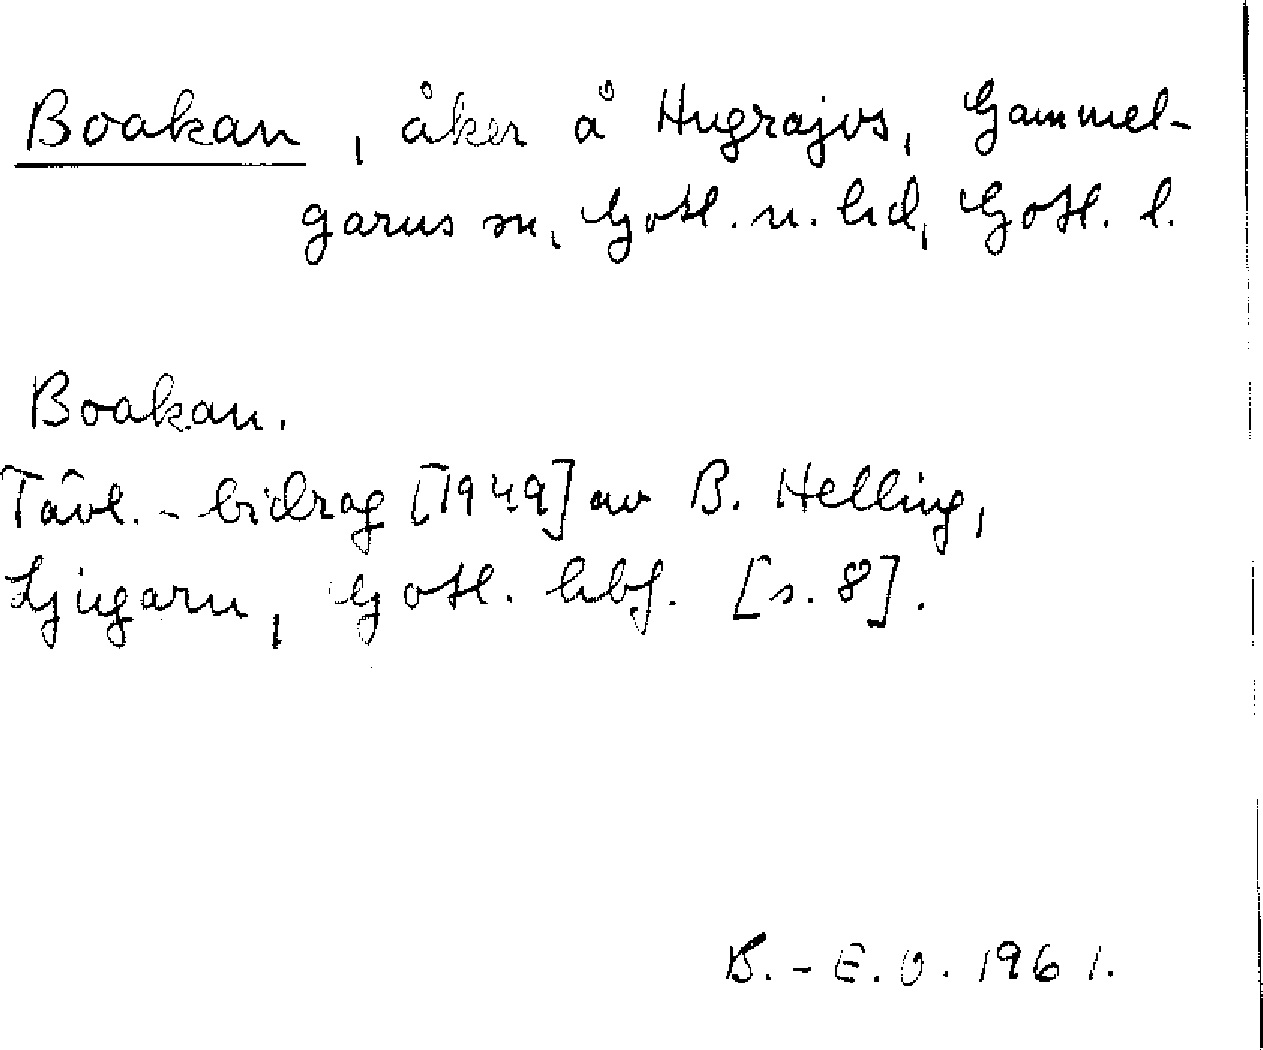 Boakan, åker å Hugrajvs, Gammel-
garns sn, Gotl. n. hd, Gotl. l.
Boakan.
Tävl.-bidrag [1949] av B. Helling,
Ljugarn, Gotl. hbf. [s. 8].
B.-E. O. 1961.